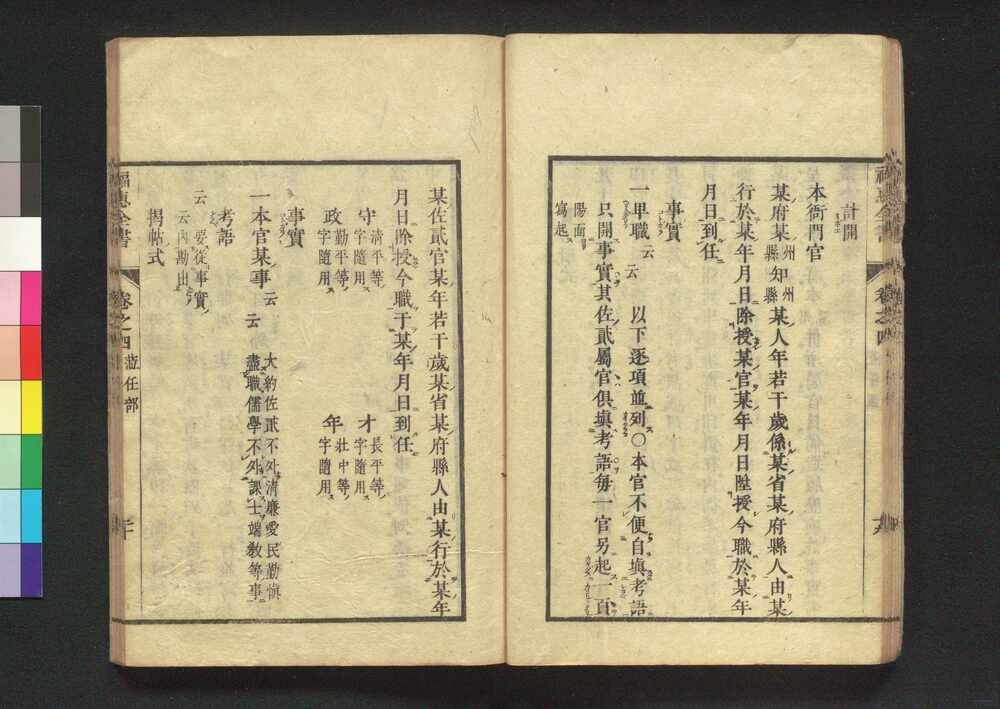 福惠全書
卷之四
計開
本衙門官
某府某州縣知州縣某人年若干歲係某省某府縣人由某
行於某年月日除授某官某年月日陞授今職於某年
月日到任
事實
一卑職云云 以下逐項並列○本官不便自塡考語
只開事實其佐貳屬官俱塡考語每一官另起一頁
陽面寫起
某佐貳官某年若干歲某省某府縣人由某行於某年
月日除授今職于某年月日到任
守清平等字隨用 才長平等字隨用
政勤平等字隨用 年壯中等字隨用
事實
一本官某事云云 大約佐貳不外清廉愛民勤愼盡職儒學不外課士端敎等事
考語
云云 要從事實內勘出
揭帖式
福惠全書
卷之四
蒞任部